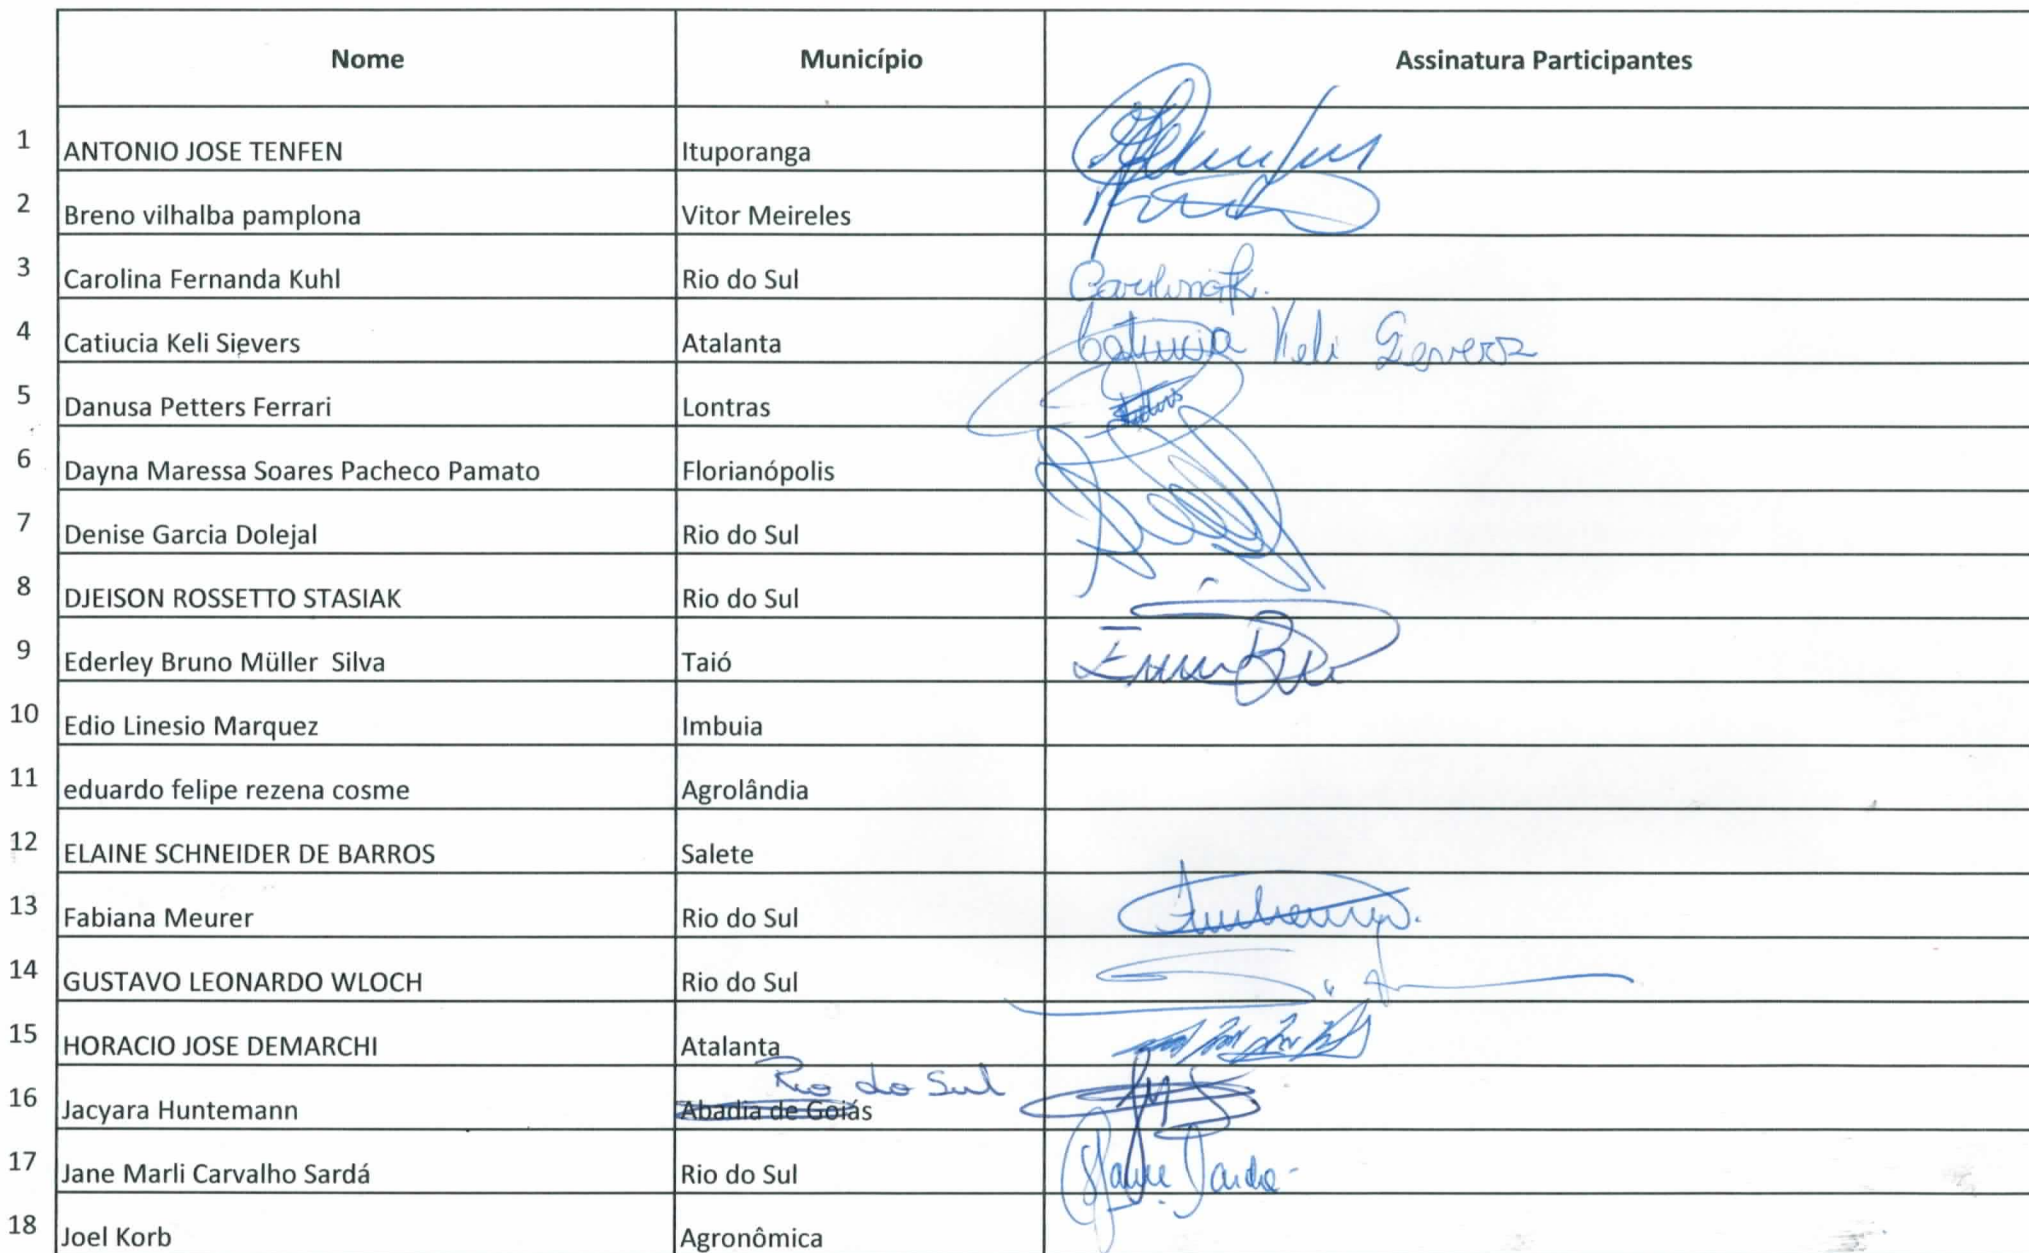 Nome Município Assinatura Participantes
1 ANTONIO JOSE TENFEN Ituporanga
2 Breno vilhalba pamplona Vitor Meireles
3 Carolina Fernanda Kuhl Rio do Sul
4 Catiucia Keli Sievers Atalanta Catiucia Keli Sievers
5 Danusa Petters Ferrari Lontras
6 Dayna Maressa Soares Pacheco Pamato Florianópolis
7 Denise Garcia Dolejal Rio do Sul
8 DJEISON ROSSETTO STASIAK Rio do Sul
9 Ederley Bruno Müller Silva Taió
10 Edio Linesio Marquez Imbuia
11 eduardo felipe rezena cosme Agrolândia
12 ELAINE SCHNEIDER DE BARROS Salete
13 Fabiana Meurer Rio do Sul
14 GUSTAVO LEONARDO WLOCH Rio do Sul
15 HORACIO JOSE DEMARCHI Atalanta
Rio do Sul
16 Jacyara Huntemann Abadia de Goiás
17 Jane Marli Carvalho Sardá Rio do Sul
18 Joel Korb Agronômica